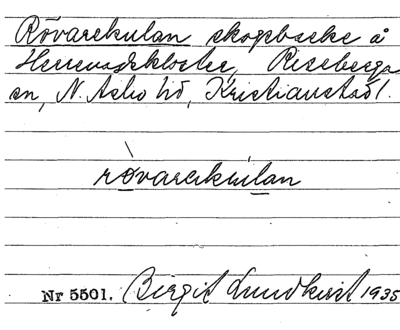 Rövarekulan skogsbacke å
Herrevadskloster, Riseberga
sn, N. Åsbo hd, Kristianstad l.
rövarekulan
Nr 5501. Birgit Lundkvist 1935